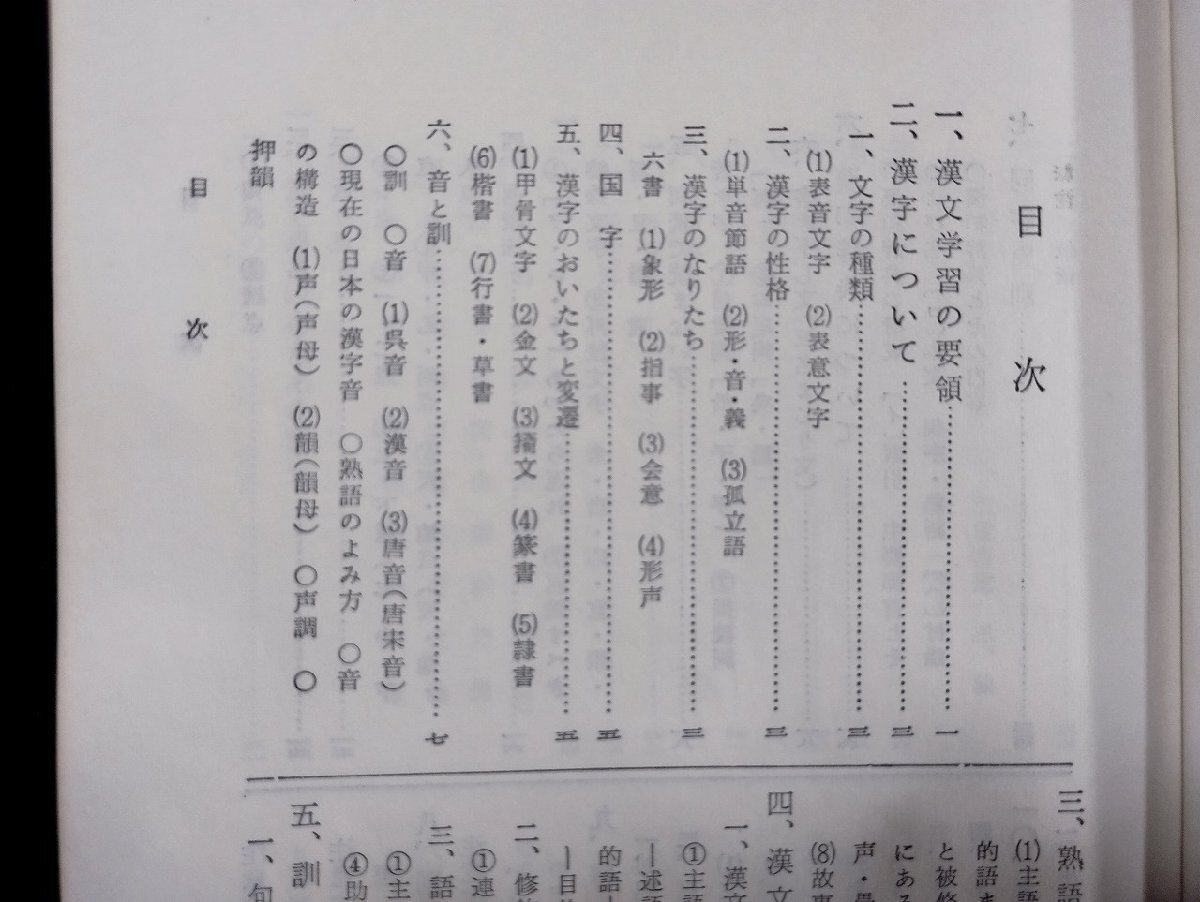 目次
一、漢文学習の要領……一
二、漢字について……三
一、文字の種類……三
⑴表音文字 ⑵表意文字
二、漢字の性格……三
⑴単音節語 ⑵形・音・義 ⑶孤立語
三、漢字のなりたち……三
六書 ⑴象形 ⑵指事 ⑶会意 ⑷形声
四、国字……五
五、漢字のおいたちと変遷……五
⑴甲骨文字 ⑵金文 ⑶籀文 ⑷篆書 ⑸隷書
⑹楷書 ⑺行書・草書
六、音と訓……七
○訓 ○音 ⑴呉音 ⑵漢音 ⑶唐音(唐宋音)
○現在の日本の漢字音 ○熟語のよみ方 ○音
の構造 ⑴声(声母) ⑵韻(韻母) ○声調 ○
押韻
三、熟語
⑴主語
的語
と被修
にある
声・
⑻故事
四、漢文
一、漢文
①主語
―述語
的語
―目的
二、修
①連
三、語
①主
④助
五、訓
一、句
目次